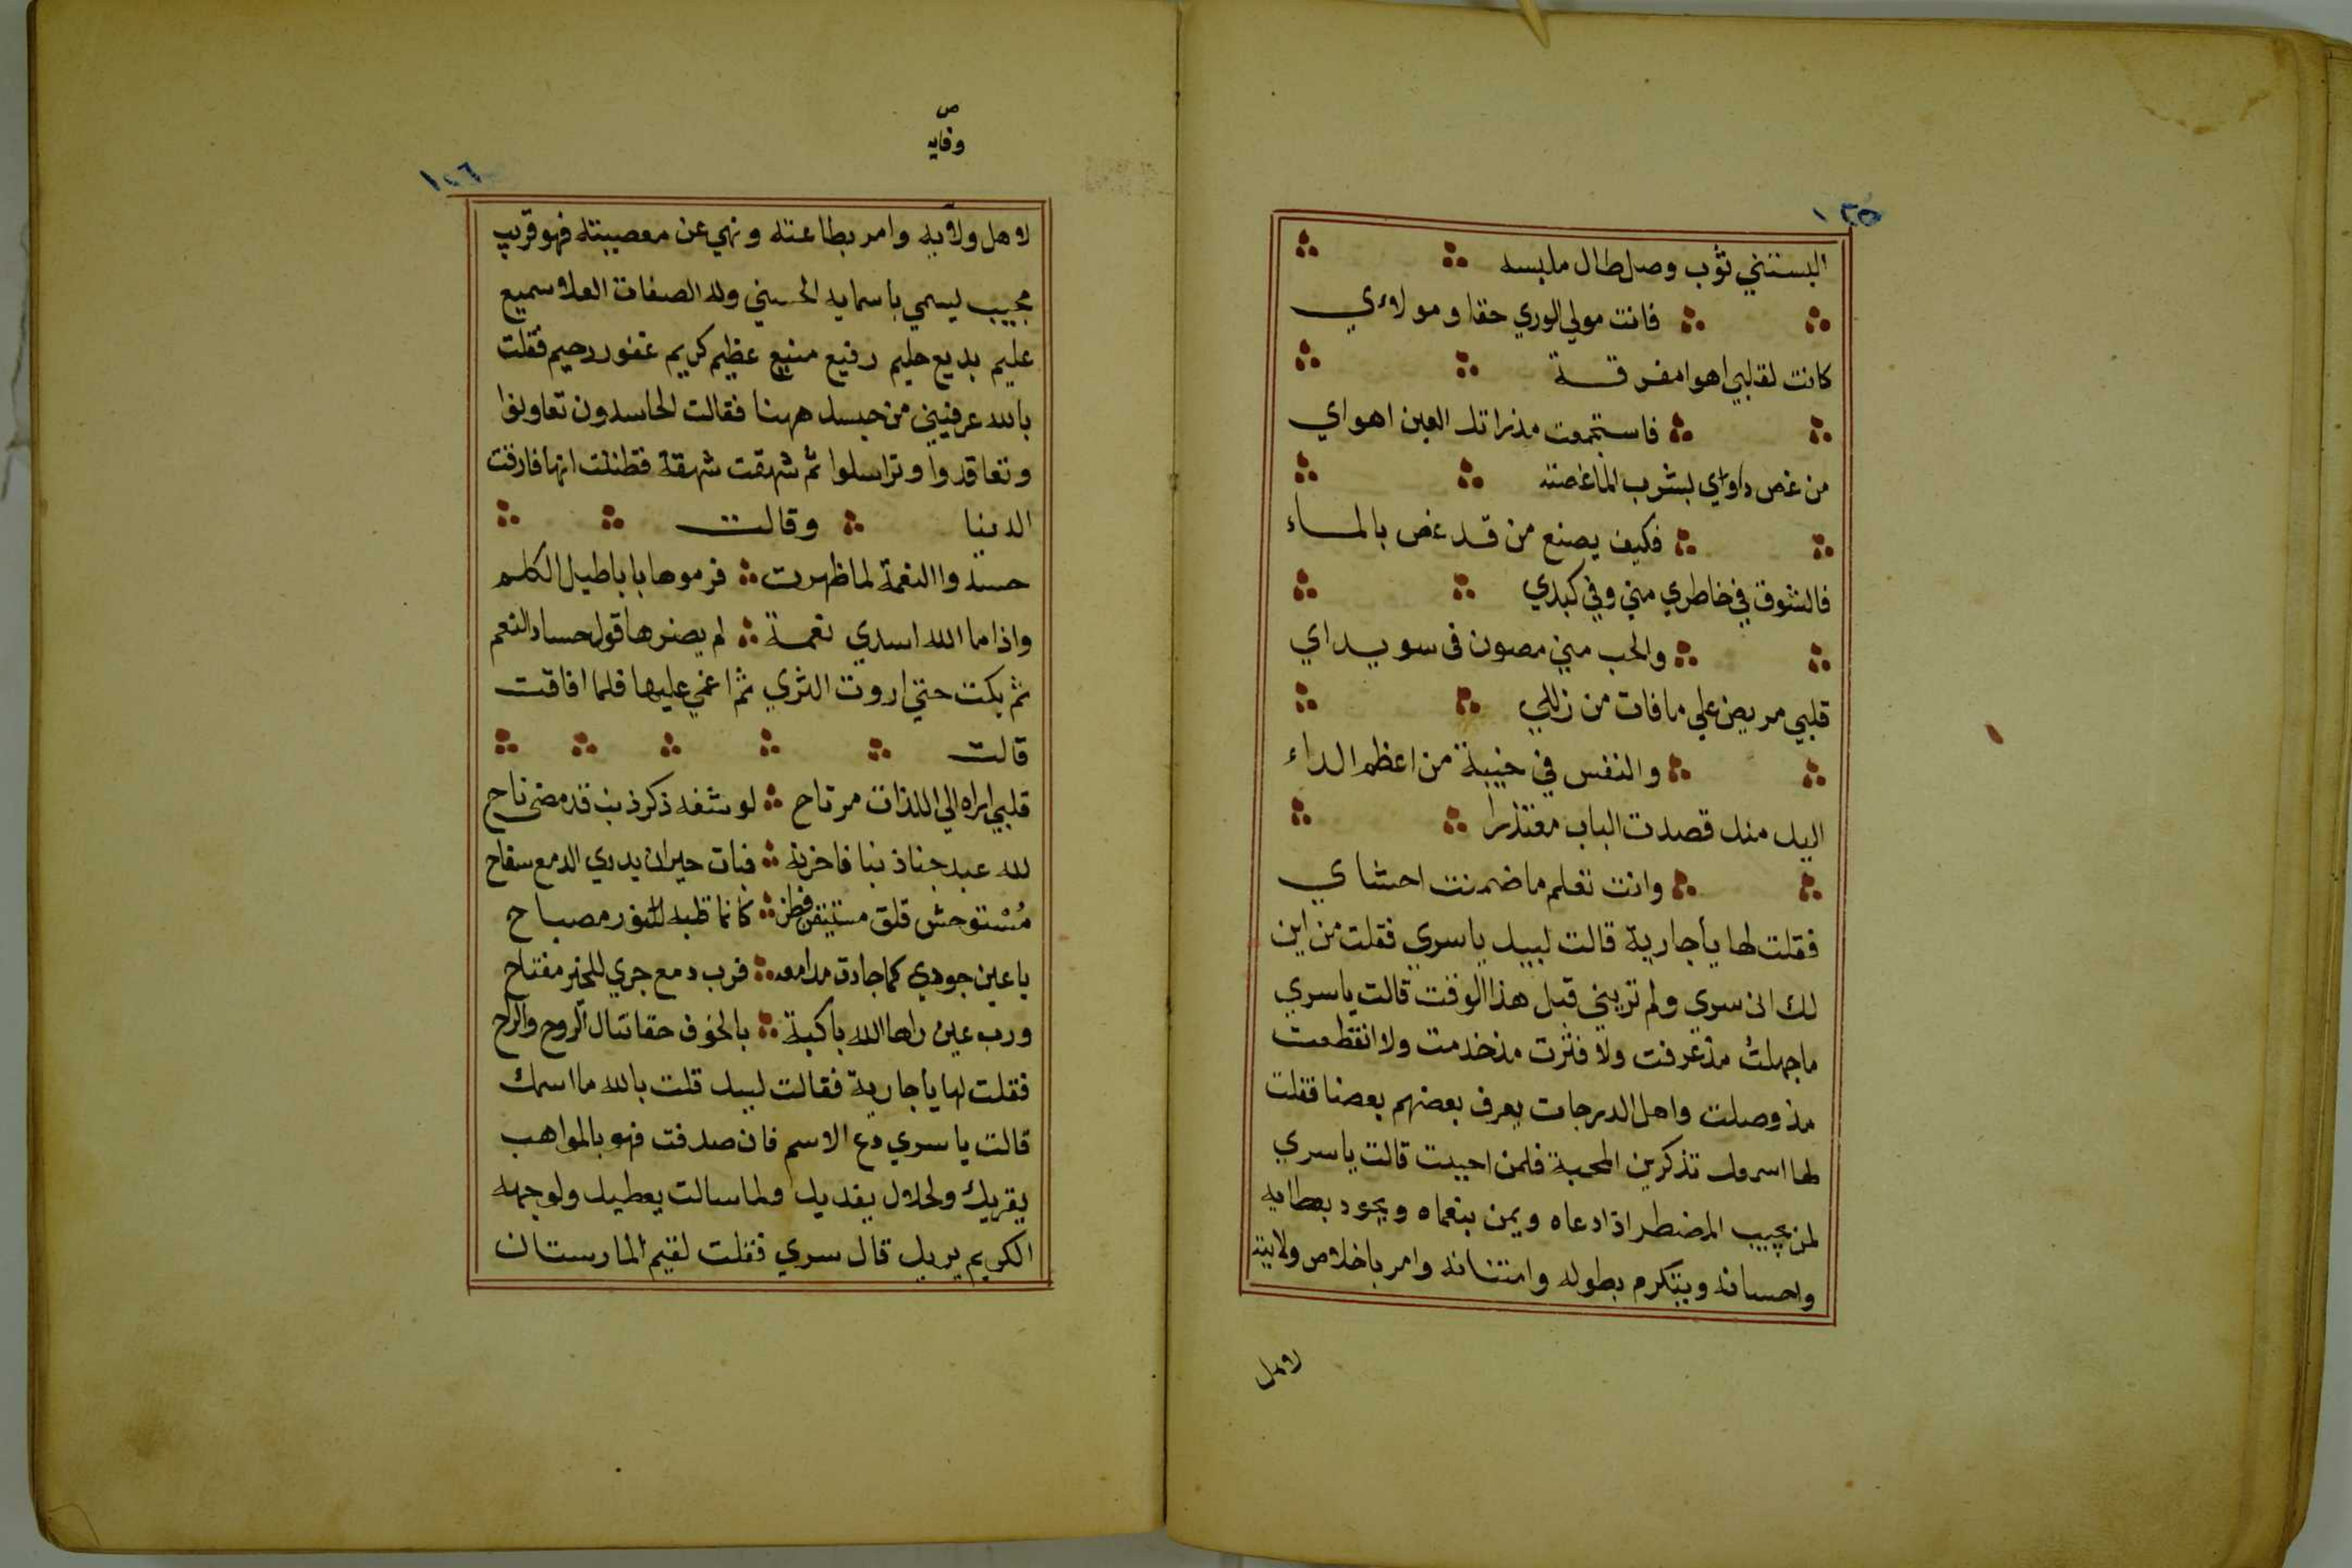 ١٢٥
البستني ثوب وصل طال ملبسه
فانت مولي الوري حقا ومولاءي
كانت لقلبي اهوا مفرقة
فاستجمعت مذراتك العين اهواي
من غص داواي بشرب الما غصته
فكيف يصنع من قد غص بالماء
فالشوق في خاطري مني وفي كبدي
والحب مني مصون فى سويداي
قلبي مريض علي مافات من زللي
والنفس في خيبة من اعظم الداء
اليك منك قصدت الباب معتذرا
وانت تعلم ما ضمنت احشاي
فقلت لها يا جارية قالت لبيك يا سري فقلت من اين
لك انى سرى ولم تريني قبل هذا الوقت قالت يا سري
ما جهلتُ مذ عرفت ولا فترت مذ خدمت ولا انقطعت
مذ وصلت واهل الدرجات يعرف بعضهم بعضا فقلت
لها اسمعك تذكرين المحبة فلمن احببت قالت يا سري
لمن يجيب المضطر اذا دعاه ويمن بنعماه ويجود بعطايه
واحسانه ويتكرم بطوله وامتنانه وامر باخلاص ولايته
لاهل
ص
وفايه
١٢٦
لاهل ولايه وامر بطاعته ونهي عن معصيته فهو قريب
مجيب ليسمي باسمايه الحسني وله الصفات العلا سميع
عليم بديع حليم رفيع منيع عظيم كريم غفور رحيم فقلت
بالله عرفيني من حبسك ههنا فقالت الحاسدون تعاونوا
وتعاقدوا وتراسلوا ثم شهقت شهقة فظننت انها فارقت
الدينا وقالت
حسدوا النعمة لما ظهرت فرموها باباطيل الكلم
واذا ما الله اسدي نعمة لم يضرها قول حساد النعم
ثم بكت حتي اروت الثري ثم اغمي عليها فلما افاقت
قالت
قلبي اراه الي اللذات مرتاح لو شفه ذكر ذنب قد مضى ناح
لله عبد جنا ذنبا فاحزنه فبات حيران يدري الدمع سفاح
مُسْتوحش قلق مستيقن فطن كانما قلبه للنور مصباح
يا عين جودي كما جادت مدامعه فرب دمع جري للخير مفتاح
ورب عين راها الله باكية بالخوف حقا تنال الروح والراح
فقلت لها يا جارية فقالت لبيك قلت بالله ما اسمك
قالت يا سري دع الاسم فان صدقت فهو بالمواهب
يقريك ولحلال يغديك ولما سالت يعطيك ولوجهه
الكريم يريك قال سري فقلت لقيم المارستان